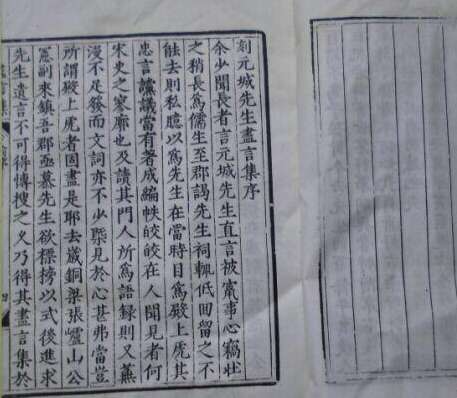 刻元城先生盡言集序
余少聞長者言元城先生直言被竄事心竊壯
之稍長爲儒生至郡謁先生祠輒低回留之不
能去則私臆以爲先生在當時目爲殿上虎其
忠言讜議當有著成編帙皎皎在人聞見者何
宋史之寥廓也及讀其門人所爲語錄則又蕪
漫不足發而文詞亦不少槩見於心甚弗當豈
所謂殿上虎者固盡是耶去歲銅梁張嶇山公
憲副來鎮吾郡亟慕先生欲標搒以式後進求
先生遺言不可得慱搜之久乃得其盡言集於